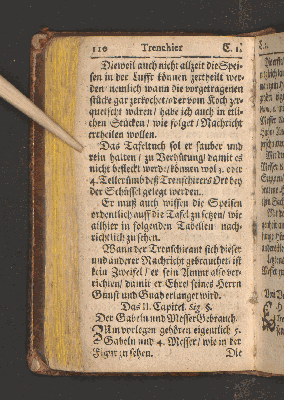 110 Trenchier C. 1.
Dieweil auch nicht allzeit die Spei-
sen in der Lufft können zertheilt wer-
den / nemlich wann die vorgetragenen
stücke gar zerkochet / oder vom Koch zer-
quetscht wären / habe ich auch in etli-
chen Stücken / wie folget / Nachricht
ertheilen wollen.
Das Tafeltuch sol er sauber und
rein halten / zu Verhütung / damit es
nicht befleckt werde / können wol 3. oder
4. Teller umb deß Trenschierers Ort bey
der Schüssel gelegt werden.
Er muß auch wissen die Speisen
ordentlich auff die Tafel zu setzen / wie
allhier in folgenden Tabellen nach-
richtlich zu sehen.
Wann der Trenschirant sich dieser
und anderer Nachricht gebrauchet / ist
kein Zweifel / er sein Ammt also ver-
richten / damit er Ehre / seines Herrn
Gunst und Gnad erlanget wird.
Das II. Capitel. Fig. 8.
Der Gabeln und Messer Gebrauch.
Zum vorlegen gehören eigentlich 5.
Gabeln und 4. Messer / wie in der
Figur zu sehen. Die